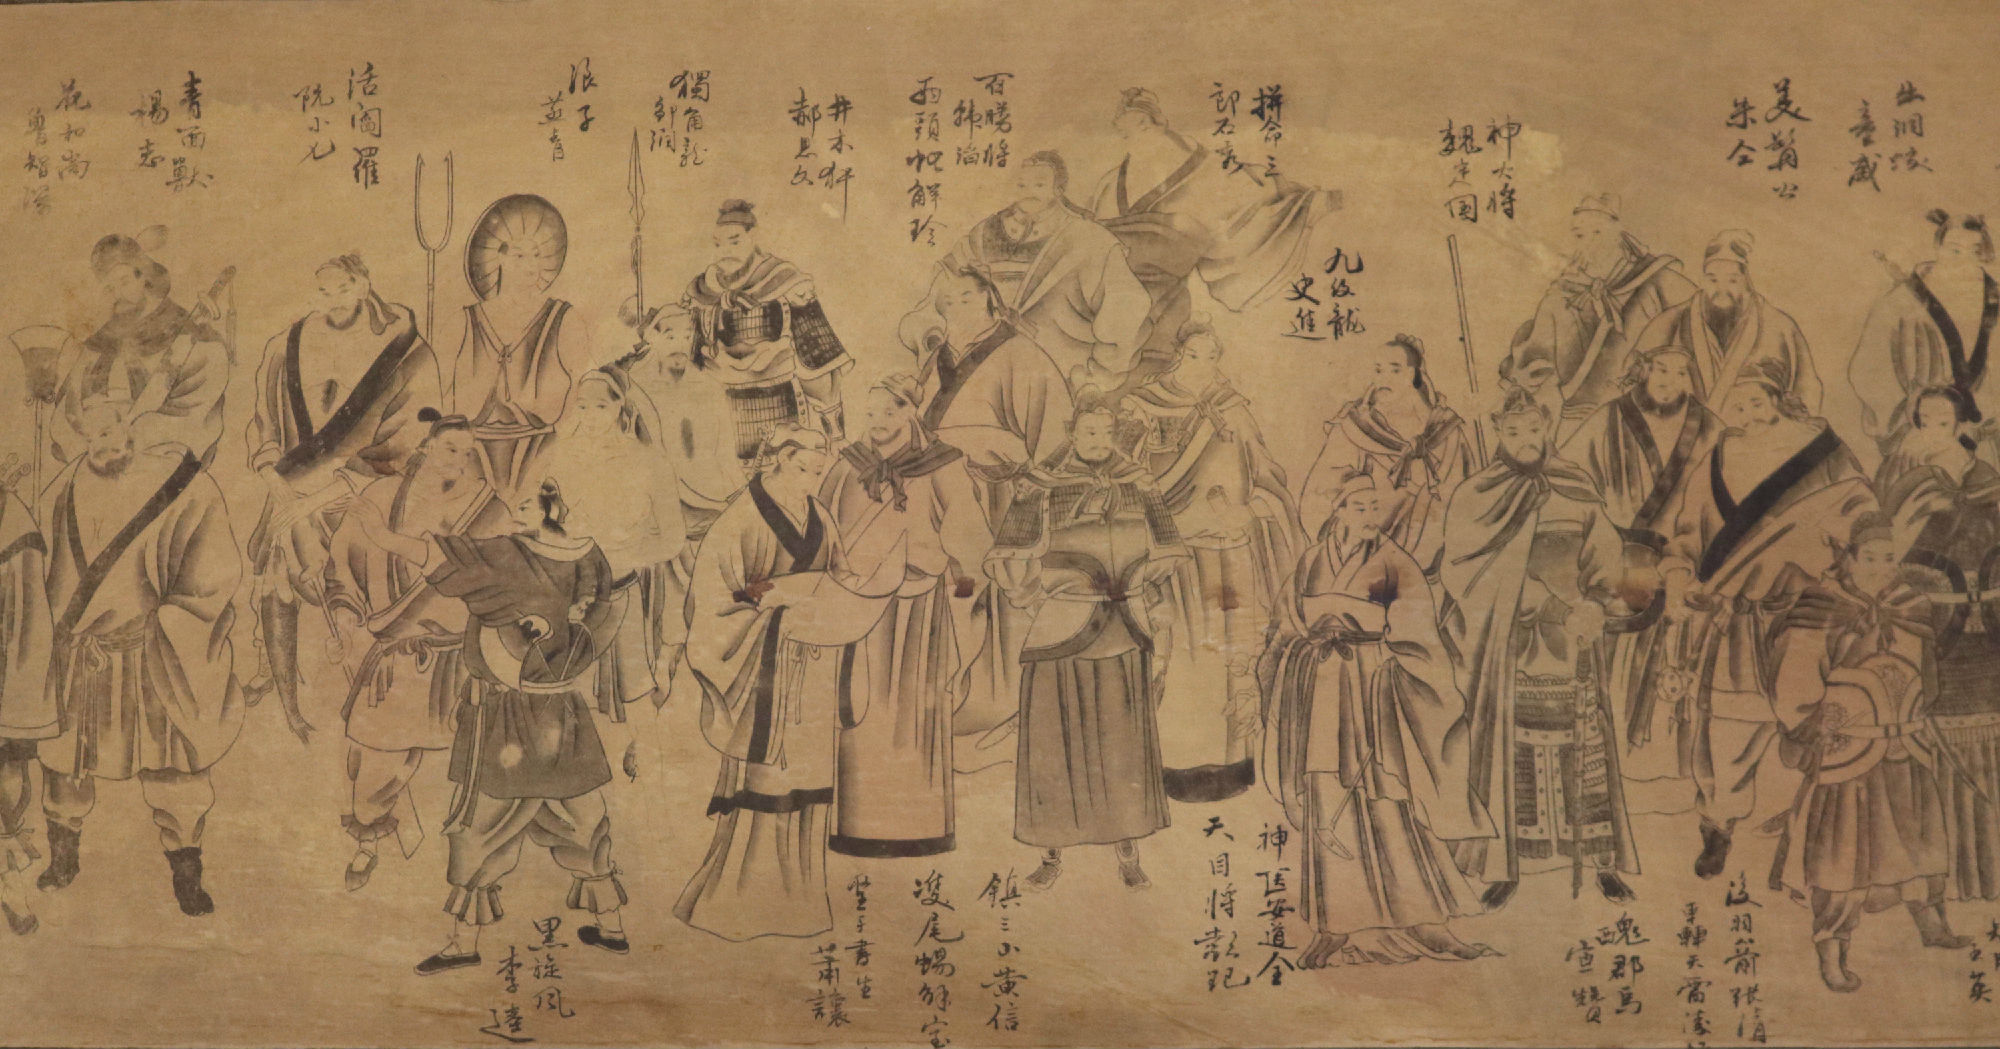 出洞蛟
童威
美髯公
朱仝
神火將
魏定国
九纹龍
史進
拼命三
郎石秀
百勝將
韩滔
两頭蛇解珍
井木犴
郝思文
獨角龍
鄒潤
浪子
燕青
活阎羅
阮小七
青面獸
楊志
花和尚
魯智深
玉英
没羽箭張清
車轟天雷凌
醜郡馬
宣贊
神医安道全
天目將彭玘
鎮三山黄信
雙尾蝎解宝
聖手書生
蕭讓
黑旋风
李逵